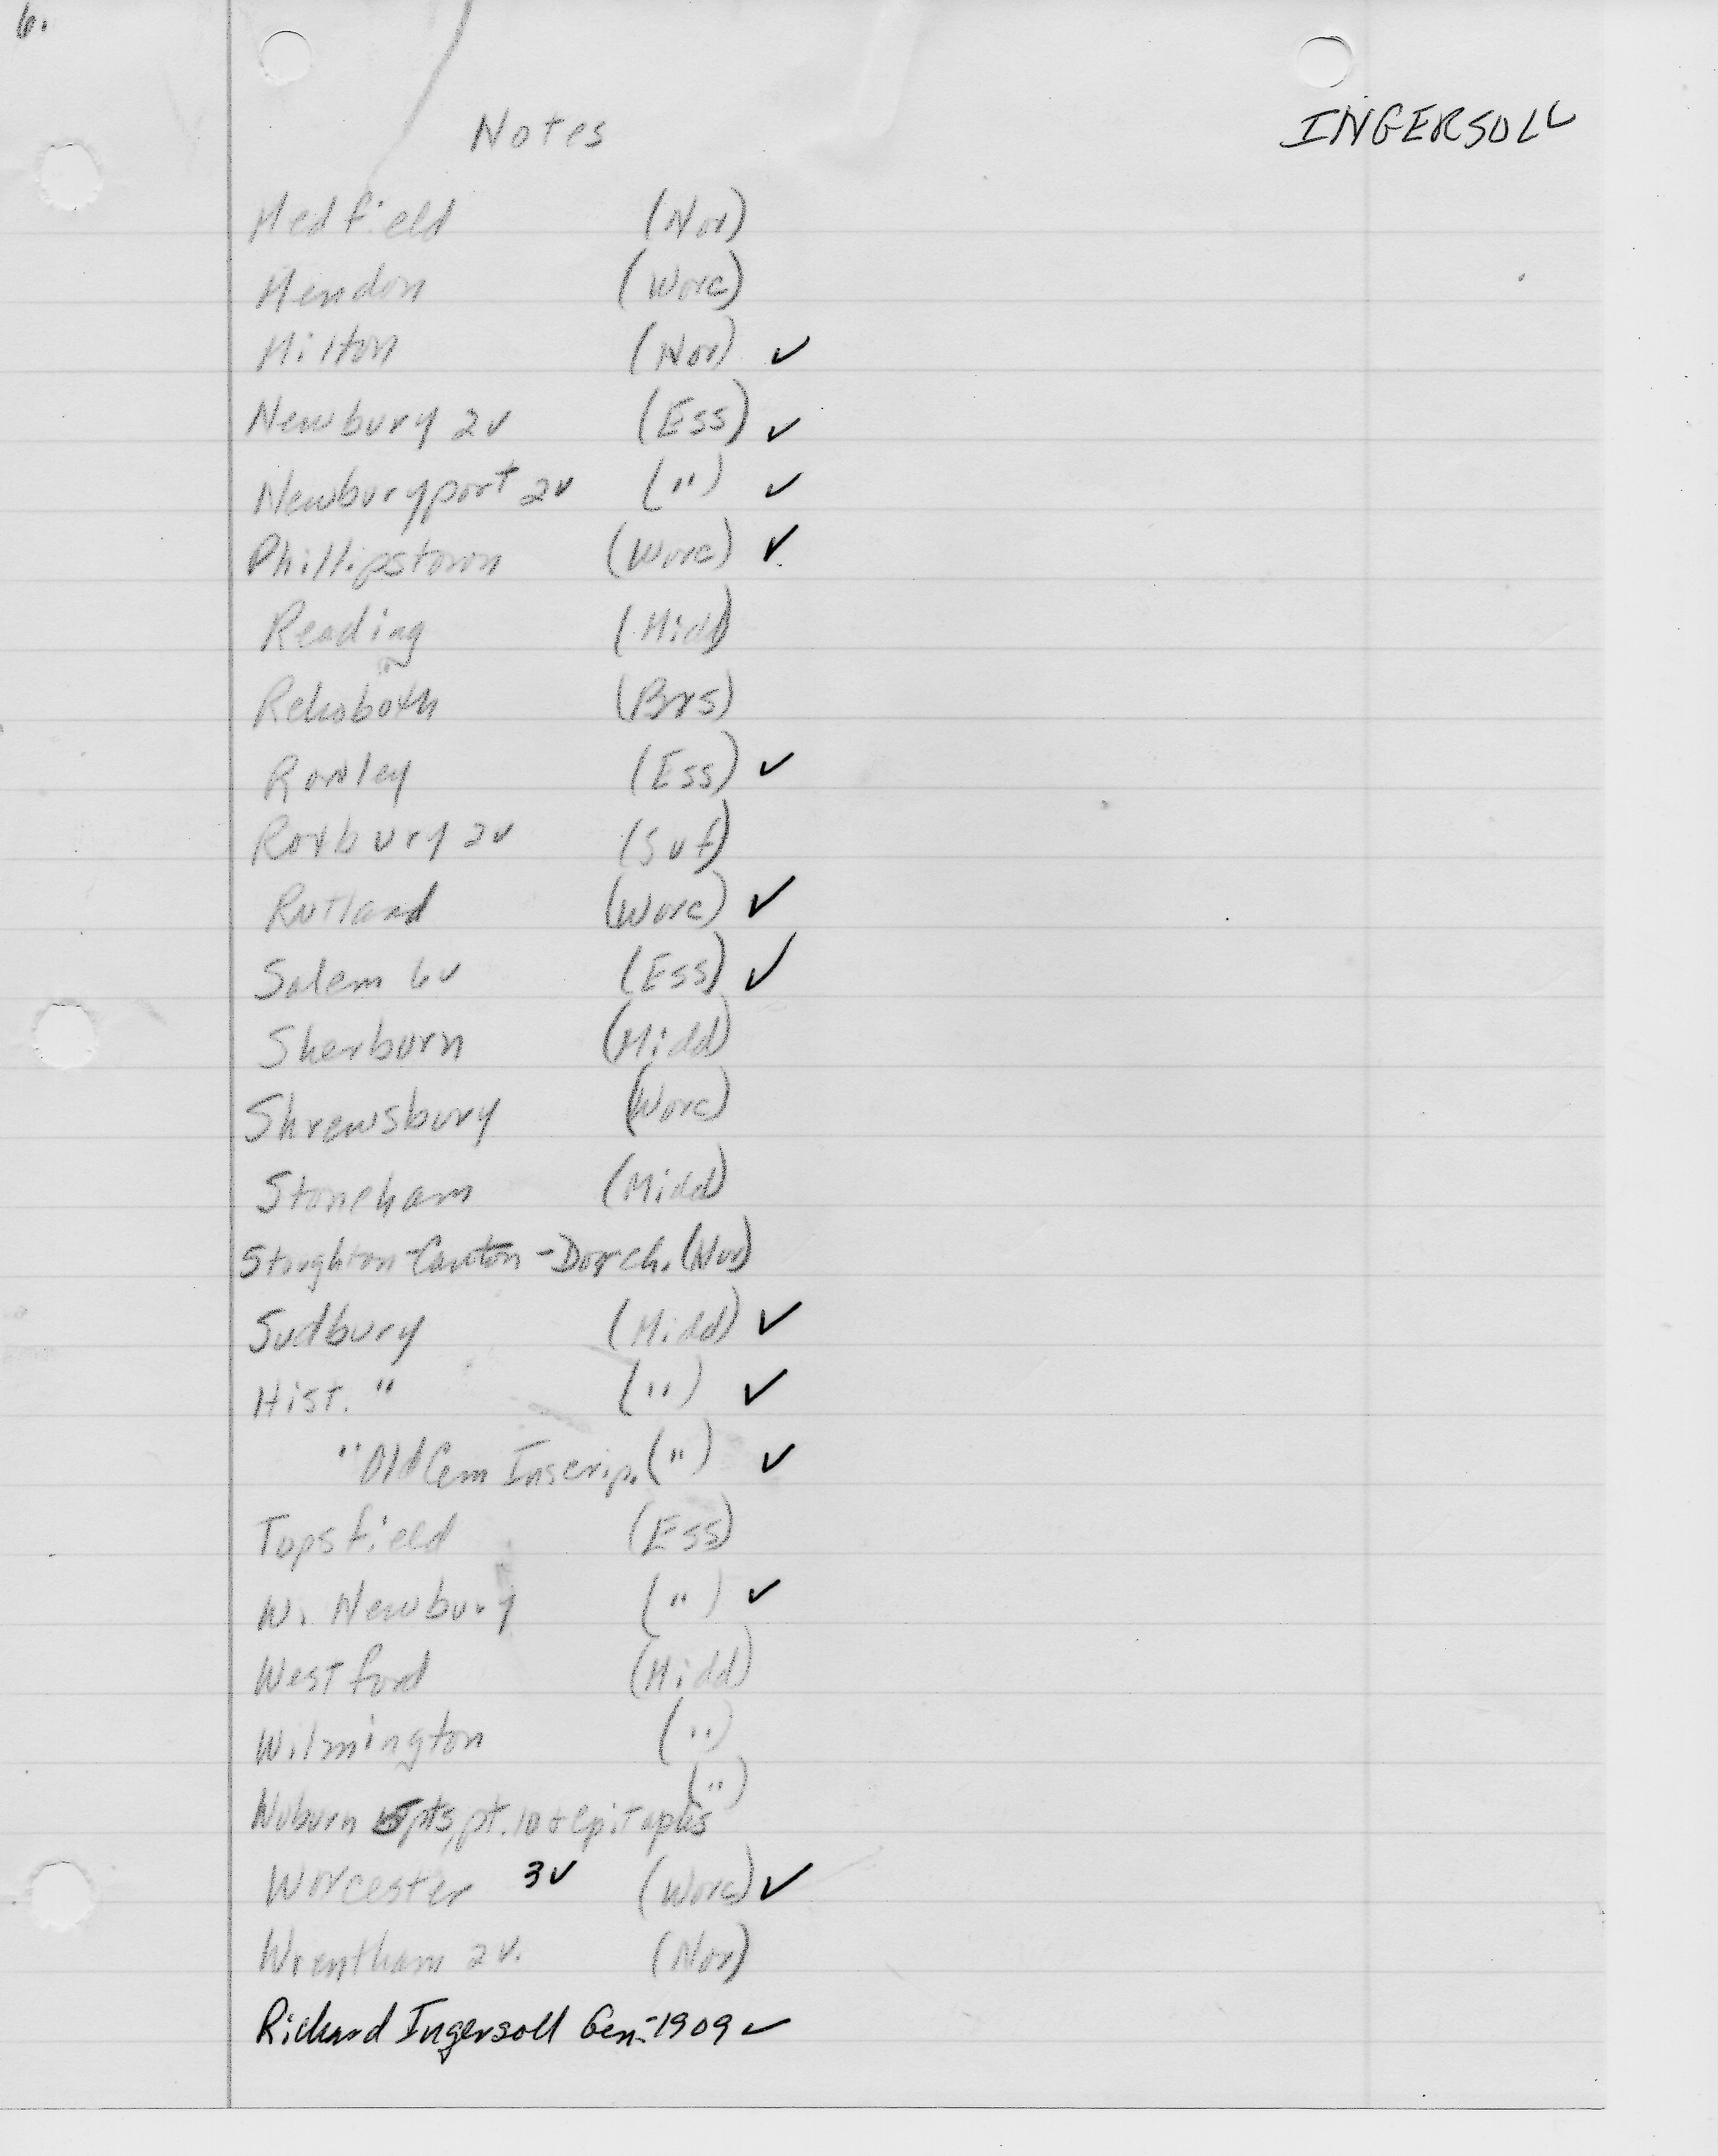 6.
Notes INGERSOLL
Medfield (Nor)
Mendon (Worc)
Milton (Nor) ✓
Newbury 2v (Ess) ✓
Newburyport 2v (") ✓
Phillipstown (Worc) ✓
Reading (Midd)
Rehoboth (Brs)
Rowley (Ess) ✓
Roxbury 2v (Suf)
Rutland (Worc) ✓
Salem 6v (Ess) ✓
Sherburn (Midd)
Shrewsbury (Worc)
Stoneham (Midd)
Stoughton-Canton-Dorch. (Nor)
Sudbury (Midd) ✓
Hist. " (") ✓
" Old Cem Inscrip. (") ✓
Topsfield (Ess)
W. Newbury (") ✓
Westford (Midd)
Wilmington (")
(")
Woburn pts, pt. 10 + epitaphs
Worcester 3v (Worc) ✓
Wrentham 2v. (Nor)
Richard Ingersoll Gen-1909 ✓